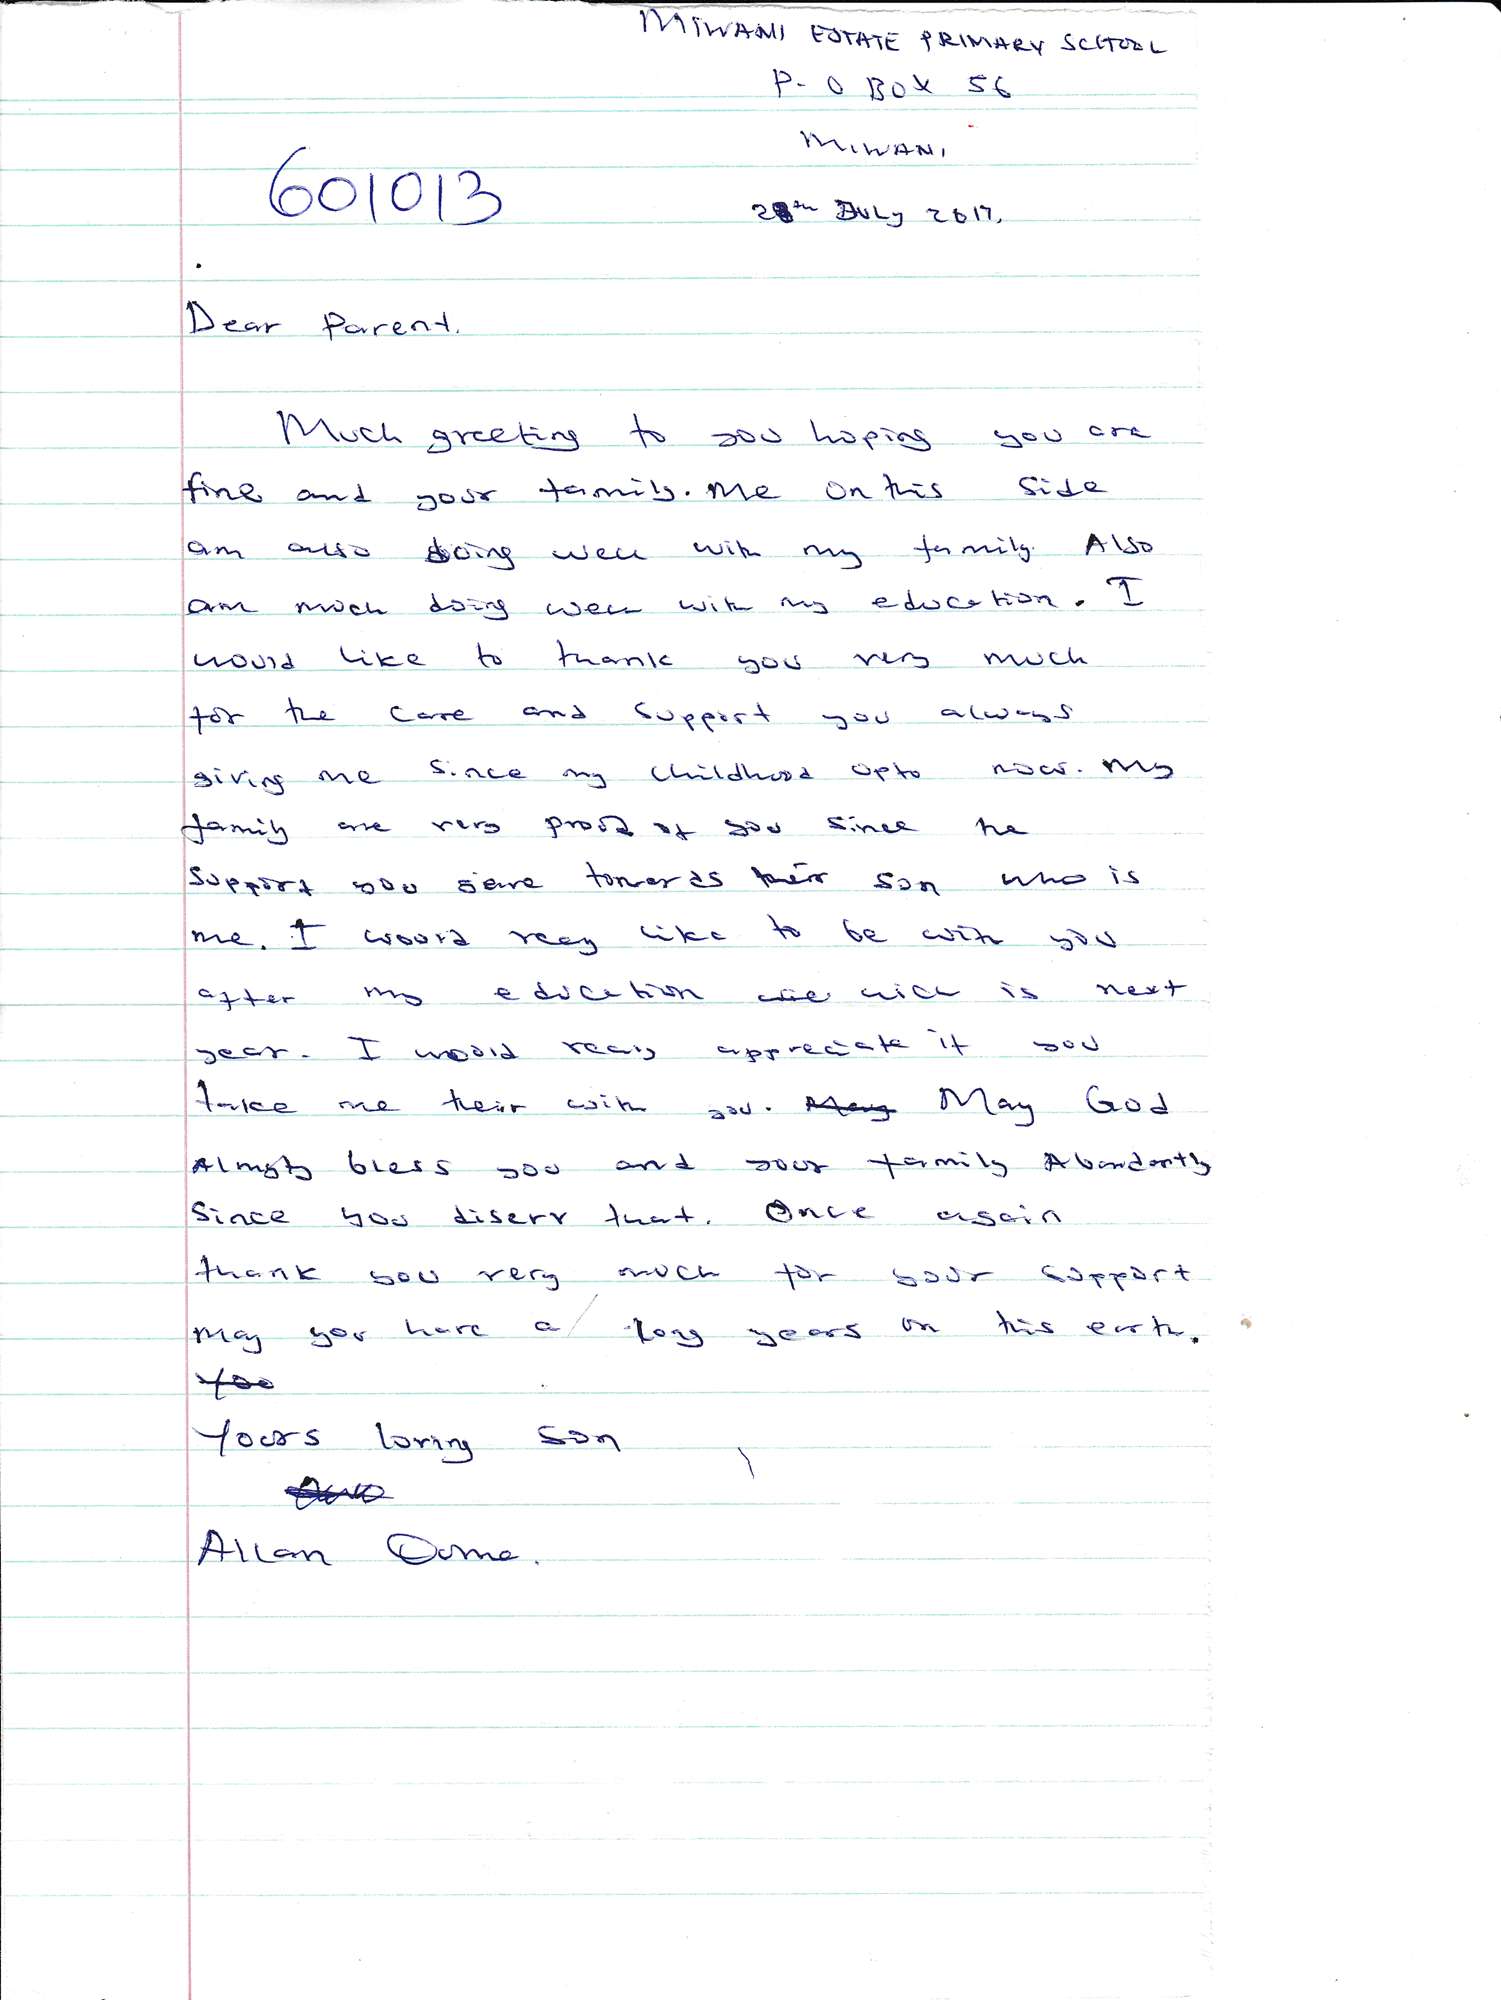 MIWANI ESTATE PRIMARY SCHOOL
P. O BOX 56
MIWANI
601013
28th JULY 2017.
Dear Parent.
Much greeting to you hoping you are
fine and your family. Me on this side
am also doing well with my family. Also
am much doing well with my education. I
would like to thank you very much
for the care and support you always
giving me since my childhood upto now. My
family are very proud of you since the
support you gave towards their son who is
me. I would realy like to be with you
after my education wich is next
year. I would realy appreciate if you
take me their with you. May May God
Almighty bless you and your family Abundantly
since you diserv that. Once again
thank you very much for your support
may you have a long years on this earth.
You
Yours loving son
Allan Ouma.